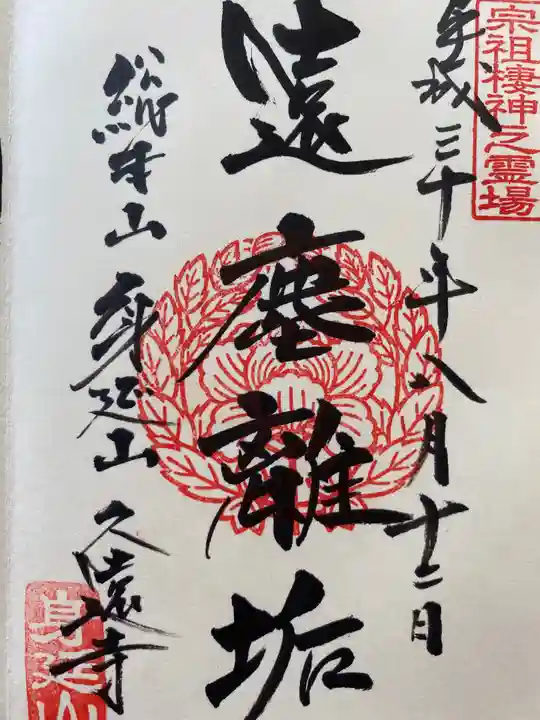 宗祖棲神之霊場
平成三十年八月十二日
遠塵離垢
総本山身延山久遠寺
身延山